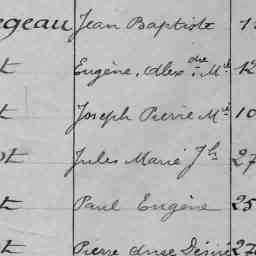 geau Jean Baptiste 1
t Eugène, Alex dre Mie 12
t Joseph Pierre Mie 10
ot Jules Marie Jh 27
t Paul Eugène 25
ot Pierre Désiré 27